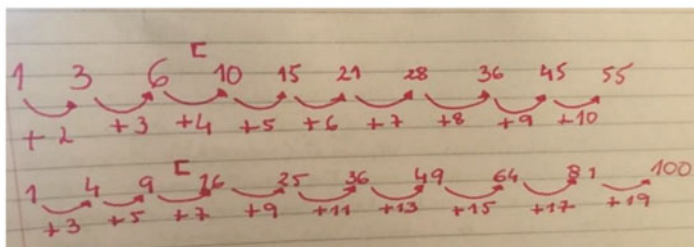 [
1 3 6 10 15 21 28 36 45 55
+2 +3 +4 +5 +6 +7 +8 +9 +10
[
1 4 9 16 25 36 49 64 81 100
+3 +5 +7 +9 +11 +13 +15 +17 +19